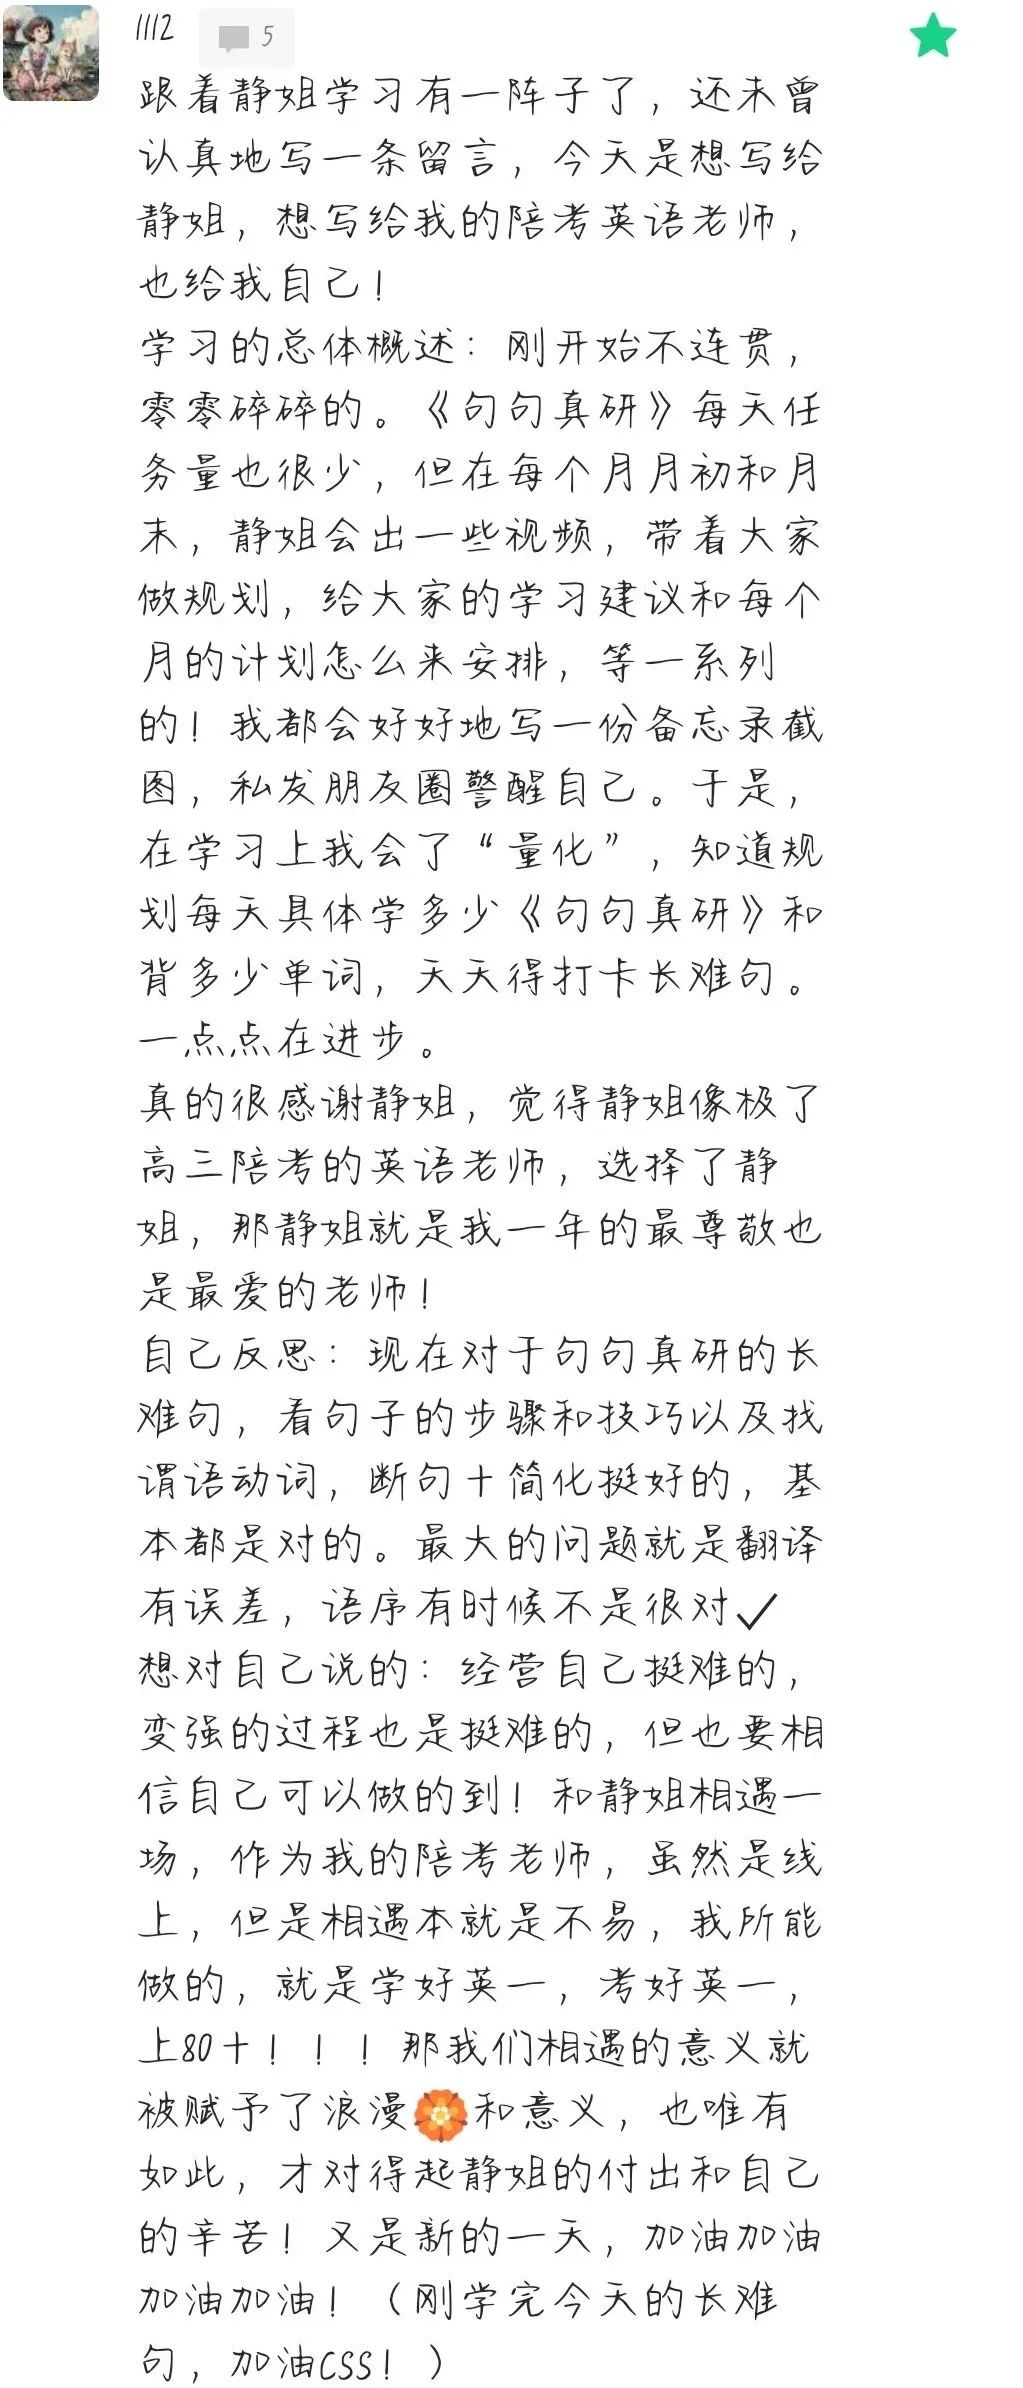 1112
5
跟着静姐学习有一阵子了，还未曾
认真地写一条留言，今天是想写给
静姐，想写给我的陪考英语老师，
也给我自己！
学习的总体概述：刚开始不连贯，
零零碎碎的。《句句真研》每天任
务量也很少，但在每个月月初和月
末，静姐会出一些视频，带着大家
做规划，给大家的学习建议和每个
月的计划怎么来安排，等一系列
的！我都会好好地写一份备忘录截
图，私发朋友圈警醒自己。于是，
在学习上我会了“量化”，知道规
划每天具体学多少《句句真研》和
背多少单词，天天得打卡长难句。
一点点在进步。
真的很感谢静姐，觉得静姐像极了
高三陪考的英语老师，选择了静
姐，那静姐就是我一年的最尊敬也
是最爱的老师！
自己反思：现在对于句句真研的长
难句，看句子的步骤和技巧以及找
谓语动词，断句＋简化挺好的，基
本都是对的。最大的问题就是翻译
有误差，语序有时候不是很对✓
想对自己说的：经营自己挺难的，
变强的过程也是挺难的，但也要相
信自己可以做的到！和静姐相遇一
场，作为我的陪考老师，虽然是线
上，但是相遇本就是不易，我所能
做的，就是学好英一，考好英一，
上80＋！！！那我们相遇的意义就
被赋予了浪漫🏵️和意义，也唯有
如此，才对得起静姐的付出和自己
的辛苦！又是新的一天，加油加油
加油加油！（刚学完今天的长难
句，加油CSS！）